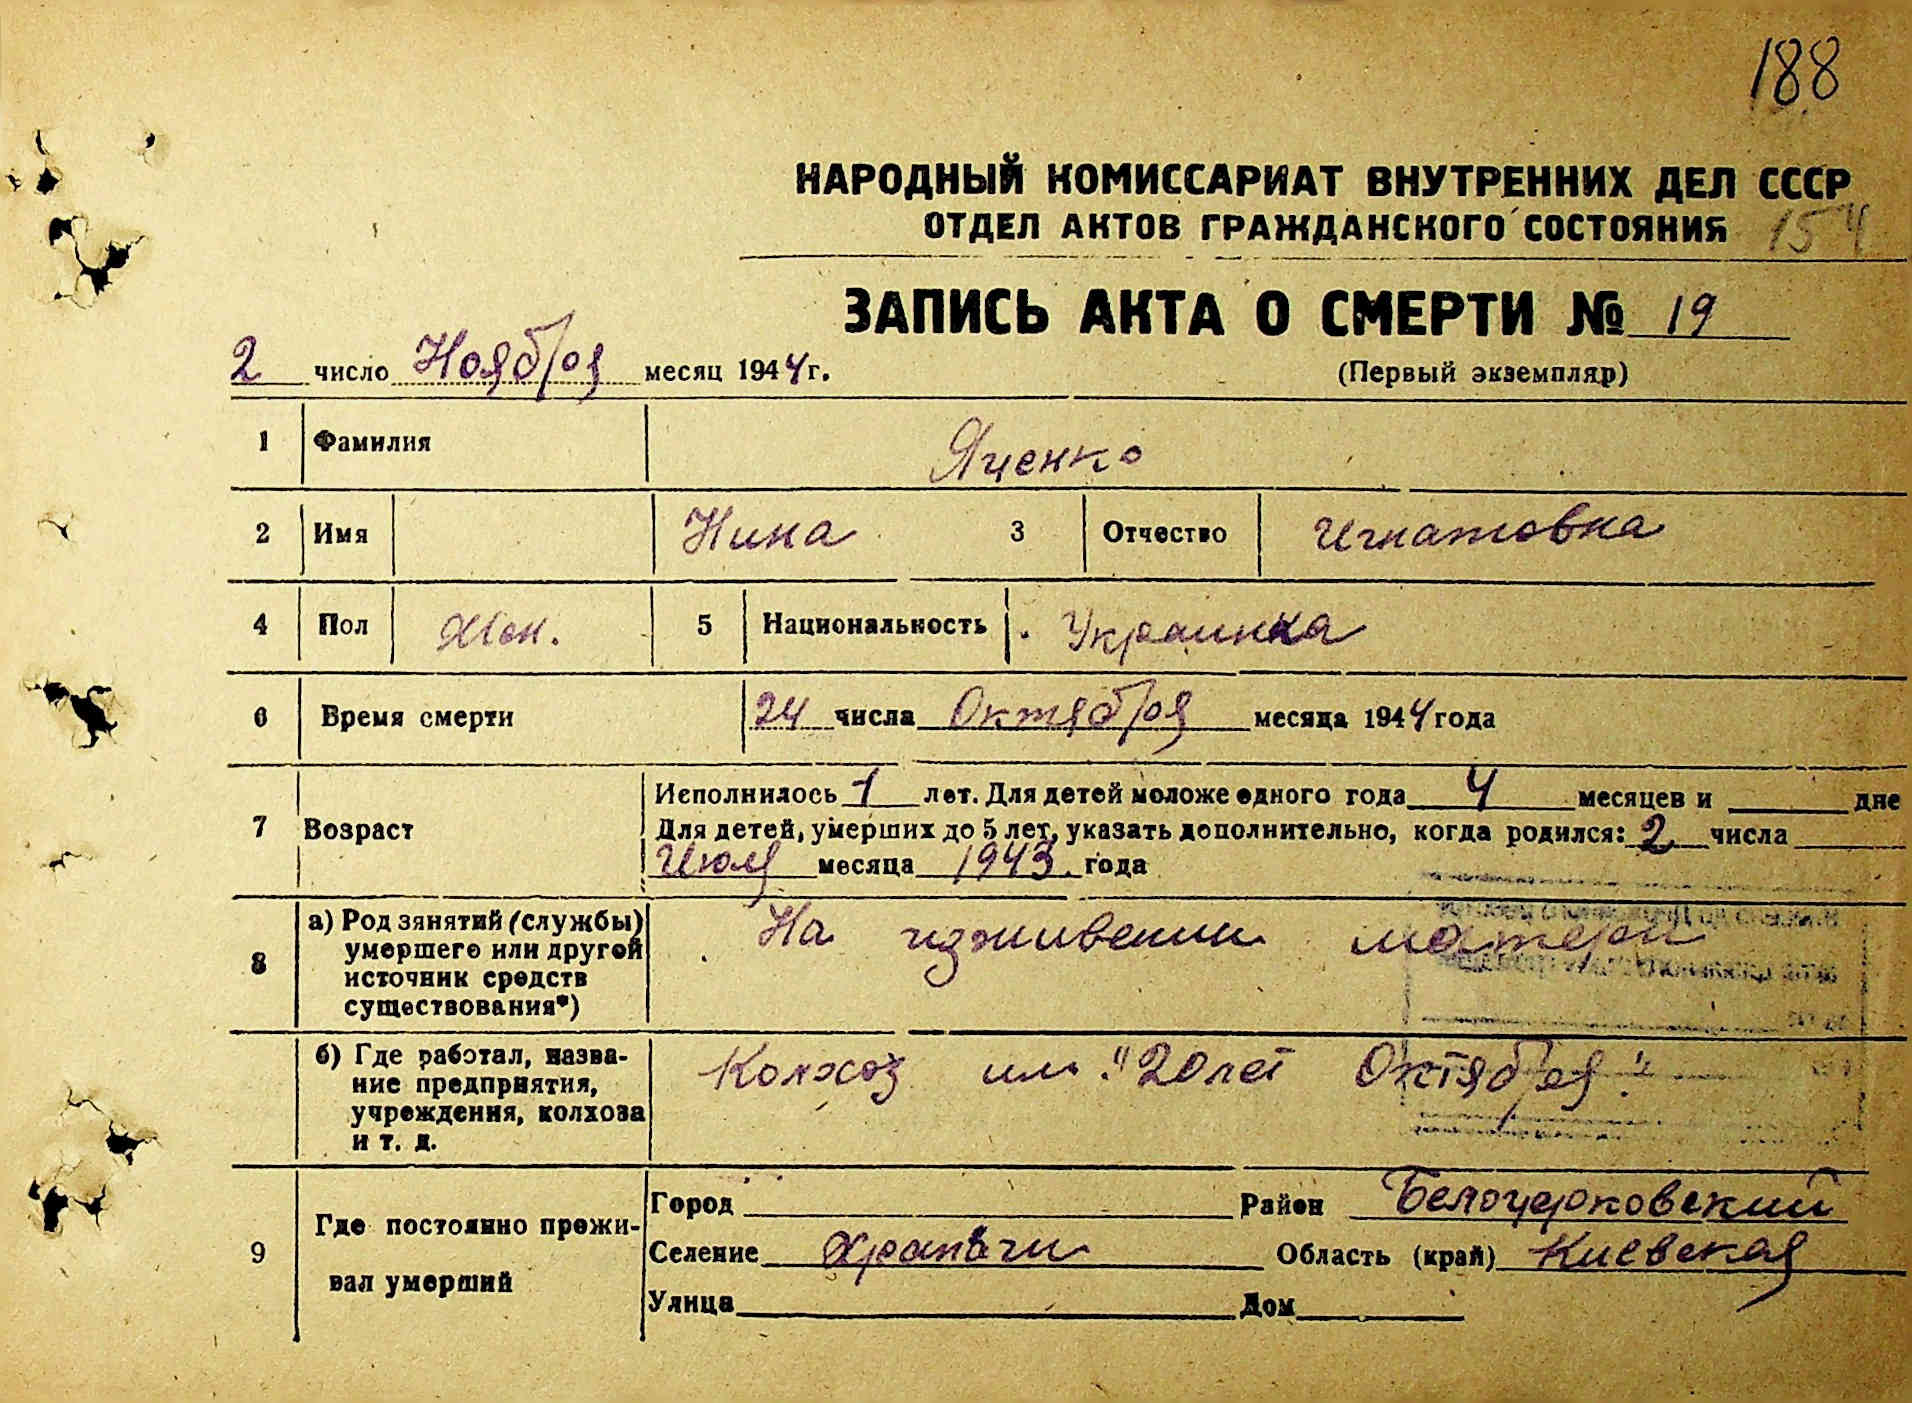 188
НАРОДНЫЙ КОМИССАРИАТ ВНУТРЕННИХ ДЕЛ СССР
ОТДЕЛ АКТОВ ГРАЖДАНСКОГО СОСТОЯНИЯ 154
ЗАПИСЬ АКТА О СМЕРТИ № 19
2 число Ноября месяц 1944 г.
(Первый экземпляр)
1 Фамилия Яценко
2 Имя Нина 3 Отчество Игнатовна
4 Пол Жен. 5 Национальность Украинка
6 Время смерти 24 числа Октября месяца 1944 года
7 Возраст
Исполнилось 1 лет. Для детей моложе одного года 4 месяцев и дне
Для детей, умерших до 5 лет, указать дополнительно, когда родился: 2 числа
Июля месяца 1943. года
8 а) Род зянятий (службы)
умершего или другой
источник средств
существования*)
На иживении матери
б) Где работал, назва-
ние предприятия,
учреждения, колхоза
и т. д.
Колхоз им. "20 лет Октября".
9 Где постоянно прожи-
вал умерший
Город Район Белоцерковский
Селение Храпачи Область (край) Киевская
Улица Дом